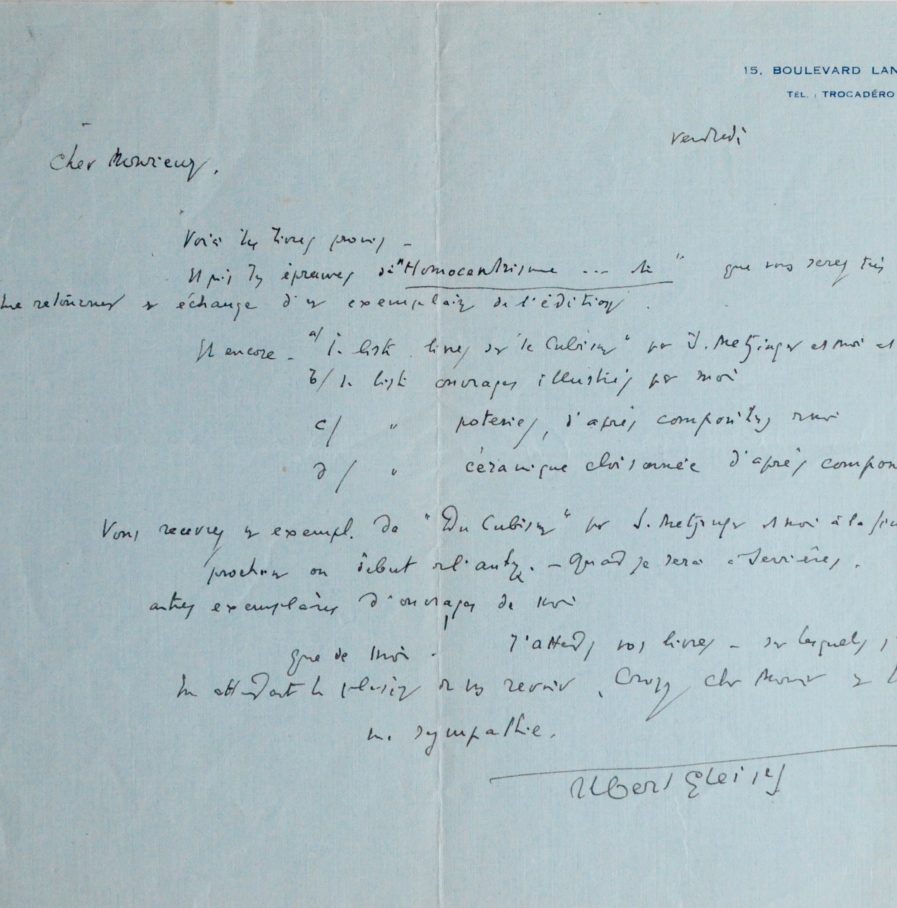 15, BOULEVARD LAN
TÉL. : TROCADÉRO
Vendredi
Cher Monsieur,
Voici les livres promis —
Et puis les épreuves de "Homocentrisme ... " que vous serez très
me retourner en échange d'un exemplaire de l'édition.
Et encore — a/ la liste livres sur le Cubisme" par J. Metzinger et moi et
b/ la liste ouvrages illustrés par moi
c/ " poteries, d'après compositions moi
d/ " céramique cloisonnée d'après compos
Vous recevrez un exempl. de "Du Cubisme" par J. Metzinger et moi à la fin
prochain ou début de l'autre. — Quand je serai à Serrières.
autres exemplaires d'ouvrages de moi
que de moi. J'attends vos livres — sur lesquels
En attendant le plaisir de vous revoir, Croyez cher Monsieur
ma sympathie.
Albert Gleizes